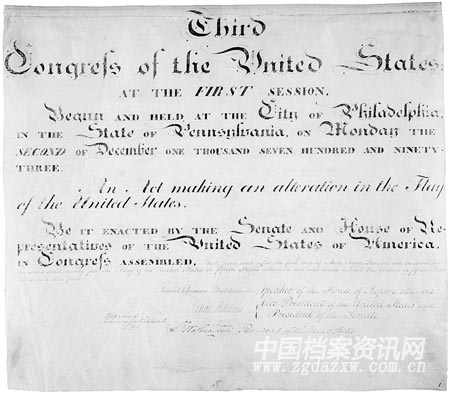 Third
Congress of the United States:
AT THE FIRST SESSION,
Begun AND HELD AT THE City OF Philadelphia,
IN THE State OF Pennsylvania, ON Monday THE
SECOND OF December ONE THOUSAND SEVEN HUNDRED AND NINETY-
THREE.
An Act making an alteration in the Flag
of the United States.
BE IT ENACTED BY THE Senate AND House OF Re-
presentatives OF THE United States OF America,
IN Congress ASSEMBLED,
Speaker of the House of Representatives
John Adams Vice President of the United States and
President of the Senate
President of the United States
中国档案资讯网
www.zgdazxw.com.cn